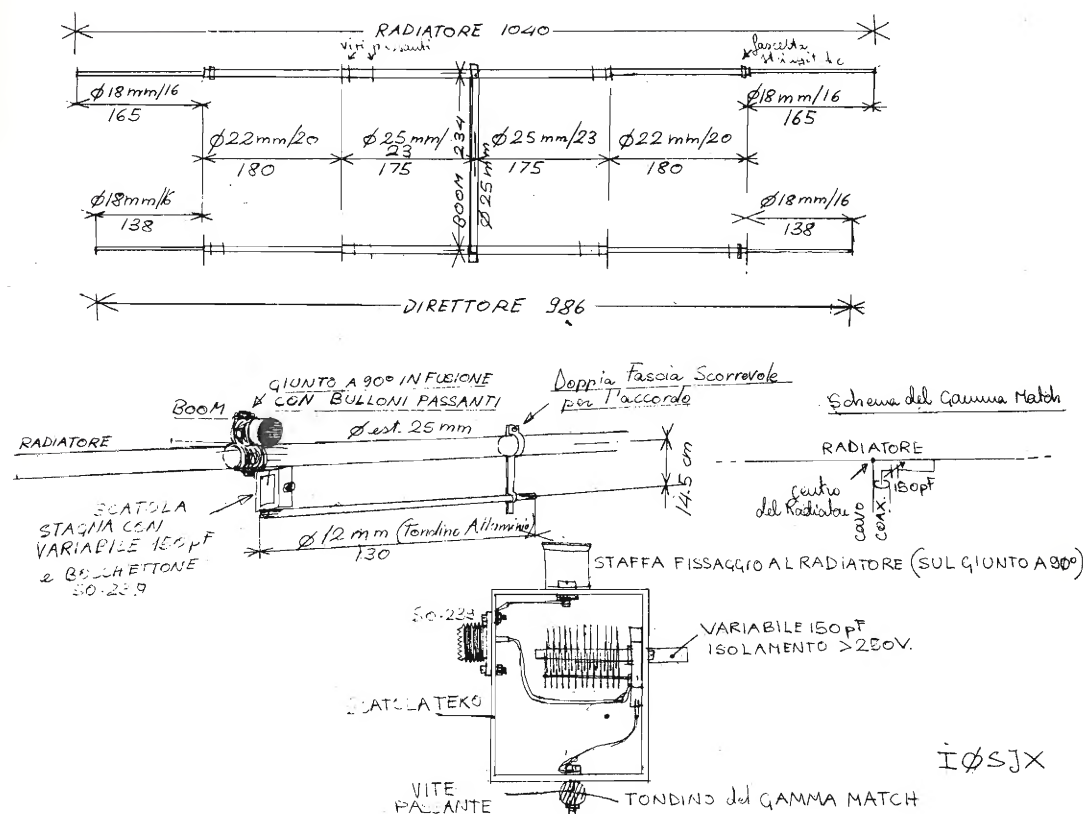 RADIATORE 1040
viti passanti
fascetta
Ø18mm/16
165
Ø22mm/20
180
Ø25mm/
23
175
BOOM 234
Ø25mm
Ø25mm/23
175
Ø22mm/20
180
Ø18mm/16
165
Ø18mm/16
138
Ø18mm/16
138
DIRETTORE 986
GIUNTO A 90° IN FUSIONE
CON BULLONI PASSANTI
BOOM
RADIATORE
Ø est. 25 mm
Doppia Fascia Scorrevole
per l'accordo
14.5 cm
SCATOLA
STAGNA CON
VARIABILE 150pF
e BOCCHETTONE
SO-239
Ø 12 mm (Tondino Alluminio)
130
Schema del Gamma Match
RADIATORE
centro
del Radiatore
150pF
CAVO
COAX.
STAFFA FISSAGGIO AL RADIATORE (SUL GIUNTO A 90°)
SO-239
VARIABILE 150pF
ISOLAMENTO >250V.
SCATOLA TEKO
VITE
PASSANTE
TONDINO del GAMMA MATCH
IØSJX